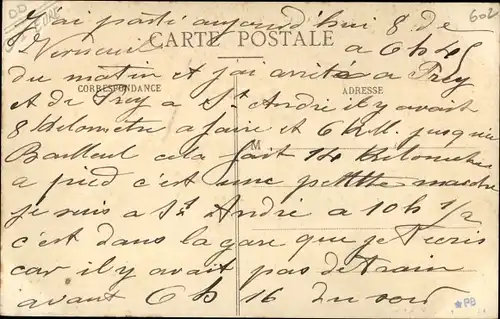 J'ai parti aujourd'hui 8 de
Verneuil a 6h45
CARTE POSTALE
du matin et j'ai arrité a Prey
CORRESPONDANCE
ADRESSE
et de Prey a St André il y avait
8 Kilometre a faire et 6 Kil. jusque
M
Bailleul cela fait 14 Kilometre
a pied c'est une petitte marche
je suis a St André a 10h 1/2
c'est dans la gare que je t'ecris
car il y avait pas de train
avant 6h 16 du soir
602
DD
EURE
*PB